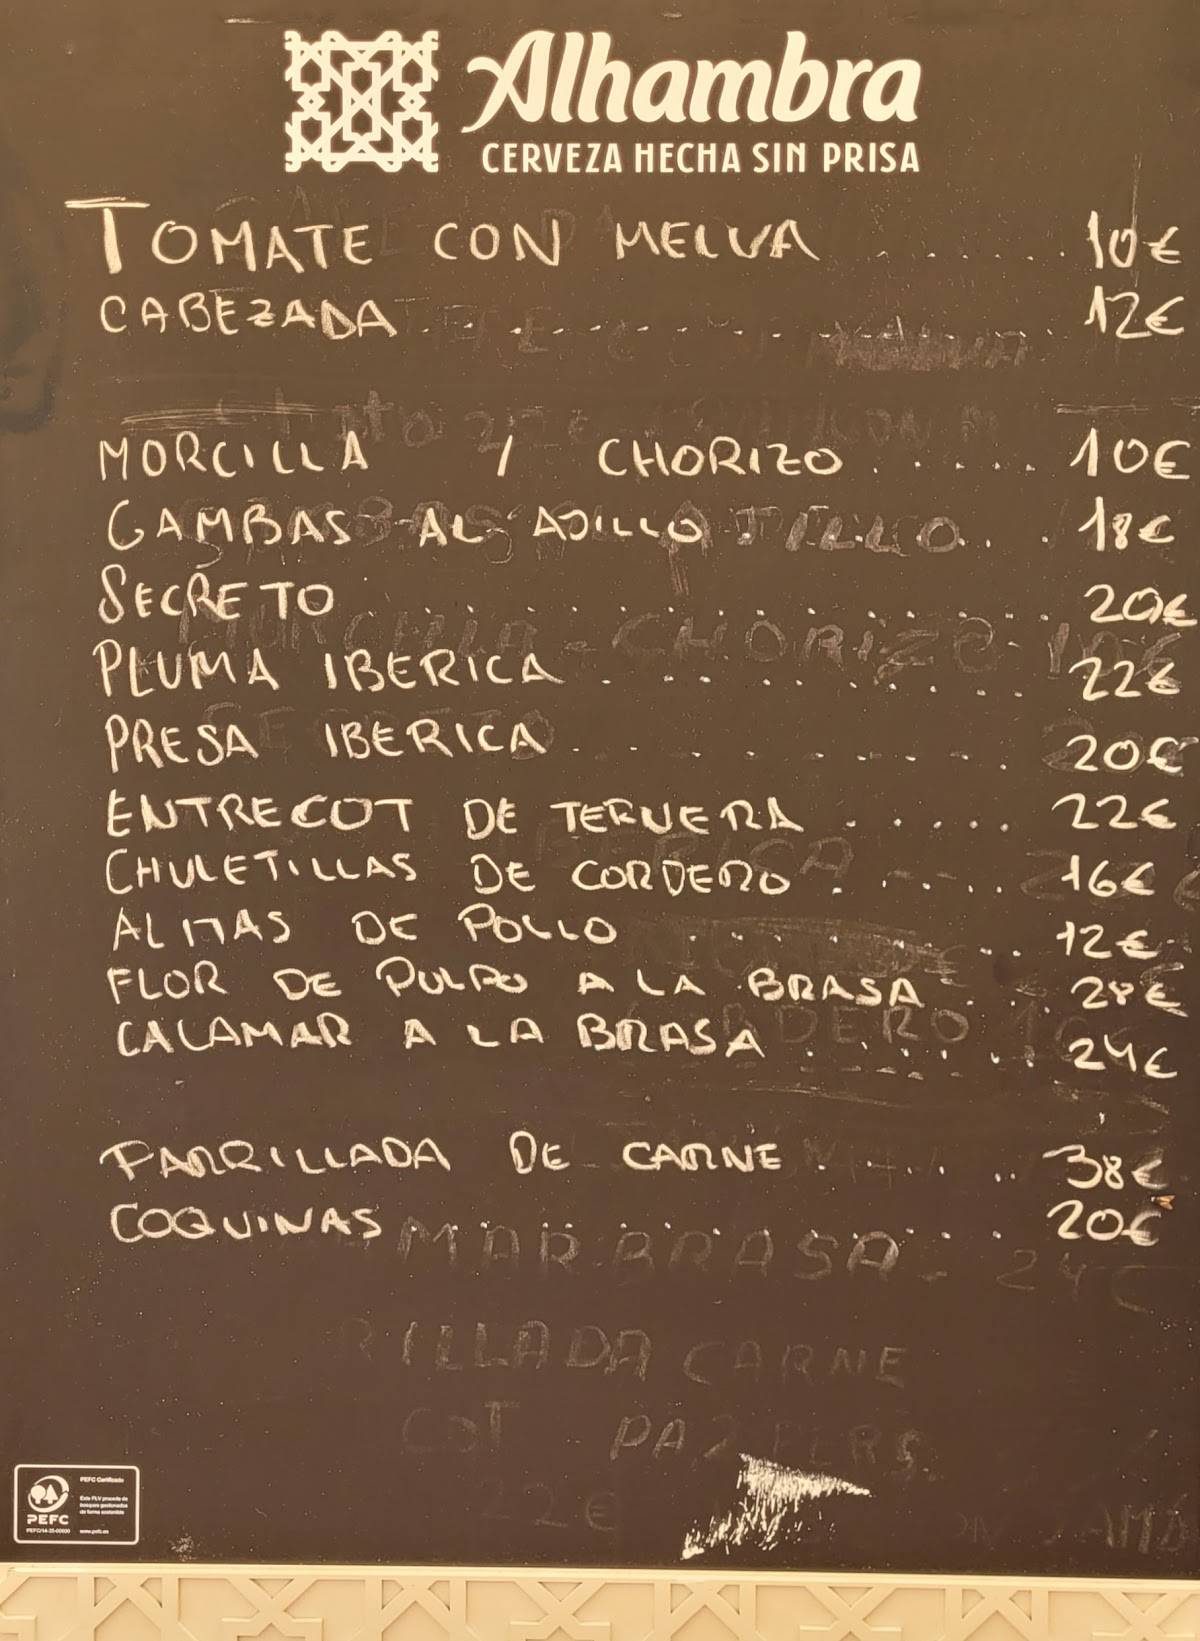 Alhambra
CERVEZA HECHA SIN PRISA
TOMATE CON MELVA ....... 10€
CABEZADA ............ 12€
MORCILLA / CHORIZO ...... 10€
GAMBAS AL AJILLO ... 18€
SECRETO ............... 20€
PLUMA IBERICA ........... 22€
PRESA IBERICA ........... 20€
ENTRECOT DE TERNERA ...... 22€
CHULETILLAS DE CORDERO ...... 16€
ALITAS DE POLLO ......... 12€
FLOR DE PULPO A LA BRASA ... €
CALAMAR A LA BRASA ....... 24€
PARRILLADA DE CARNE ...... 38€
COQUINAS ............. 20€
MAR BRASA - 24€
RILLADA CARNE
COT PA 2 PERS.
22€
PEFC
PEFC Certificado
www.pefc.es